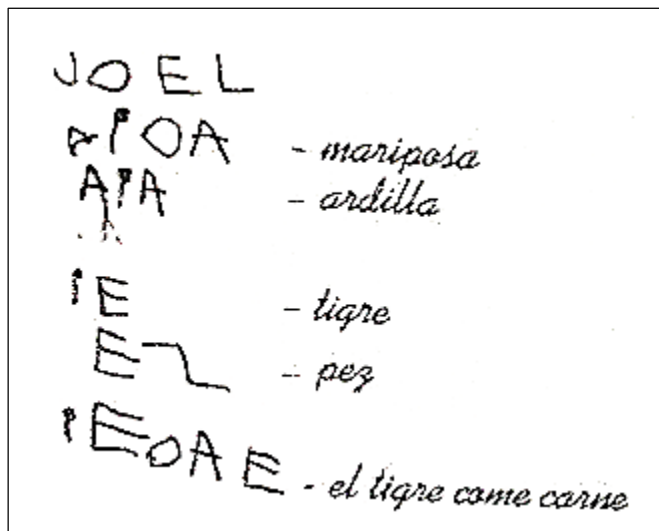 JOEL
AiOA - mariposa
AiA - ardilla
iE - tigre
E - pez
iEOAE - el tigre come carne